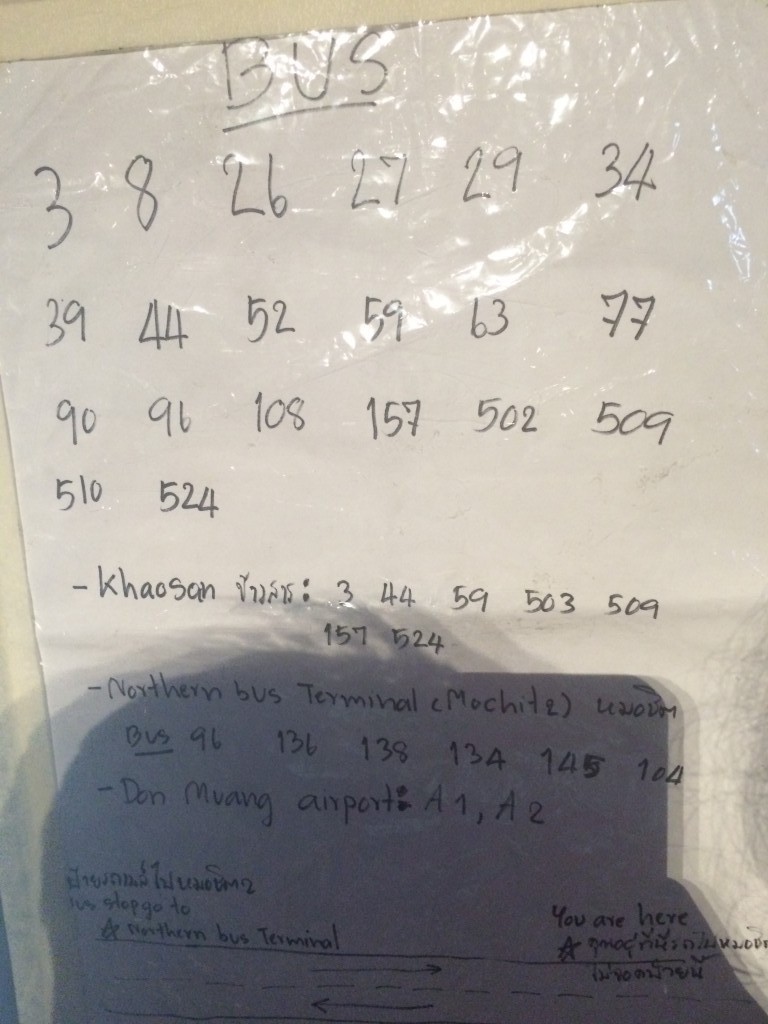 BUS
3 8 26 27 29 34
39 44 52 59 63 77
90 96 108 157 502 509
510 524
- Khaosan ข้าวสาร: 3 44 59 503 509
157 524
- Northern bus Terminal (Mochit2) หมอชิต
Bus 96 136 138 134 145 104
- Don Muang airport: A1, A2
ป้ายรถเมล์ไปหมอชิต2
bus stop go to
☆ Northern bus Terminal
You are here
☆ คุณอยู่ที่นี่รถไปหมอชิต
ไม่จอดป้ายนี้